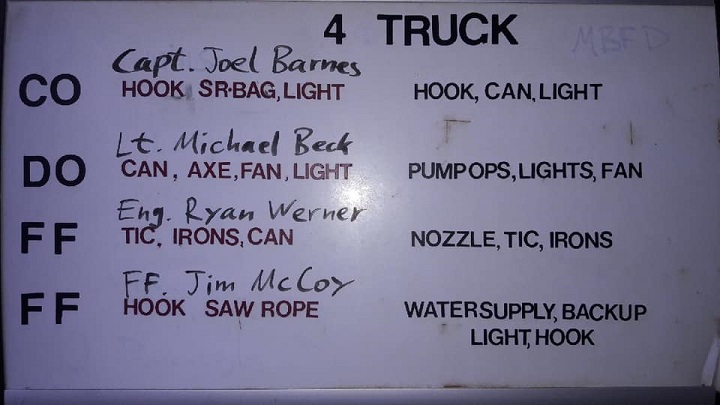 4 TRUCK MBFD
Capt. Joel Barnes
CO HOOK SR·BAG, LIGHT HOOK, CAN, LIGHT
Lt. Michael Beck
DO CAN, AXE, FAN, LIGHT PUMP OPS, LIGHTS, FAN
Eng. Ryan Werner
FF TIC, IRONS, CAN NOZZLE, TIC, IRONS
FF. Jim McCoy
FF HOOK SAW ROPE WATER SUPPLY, BACKUP
LIGHT, HOOK